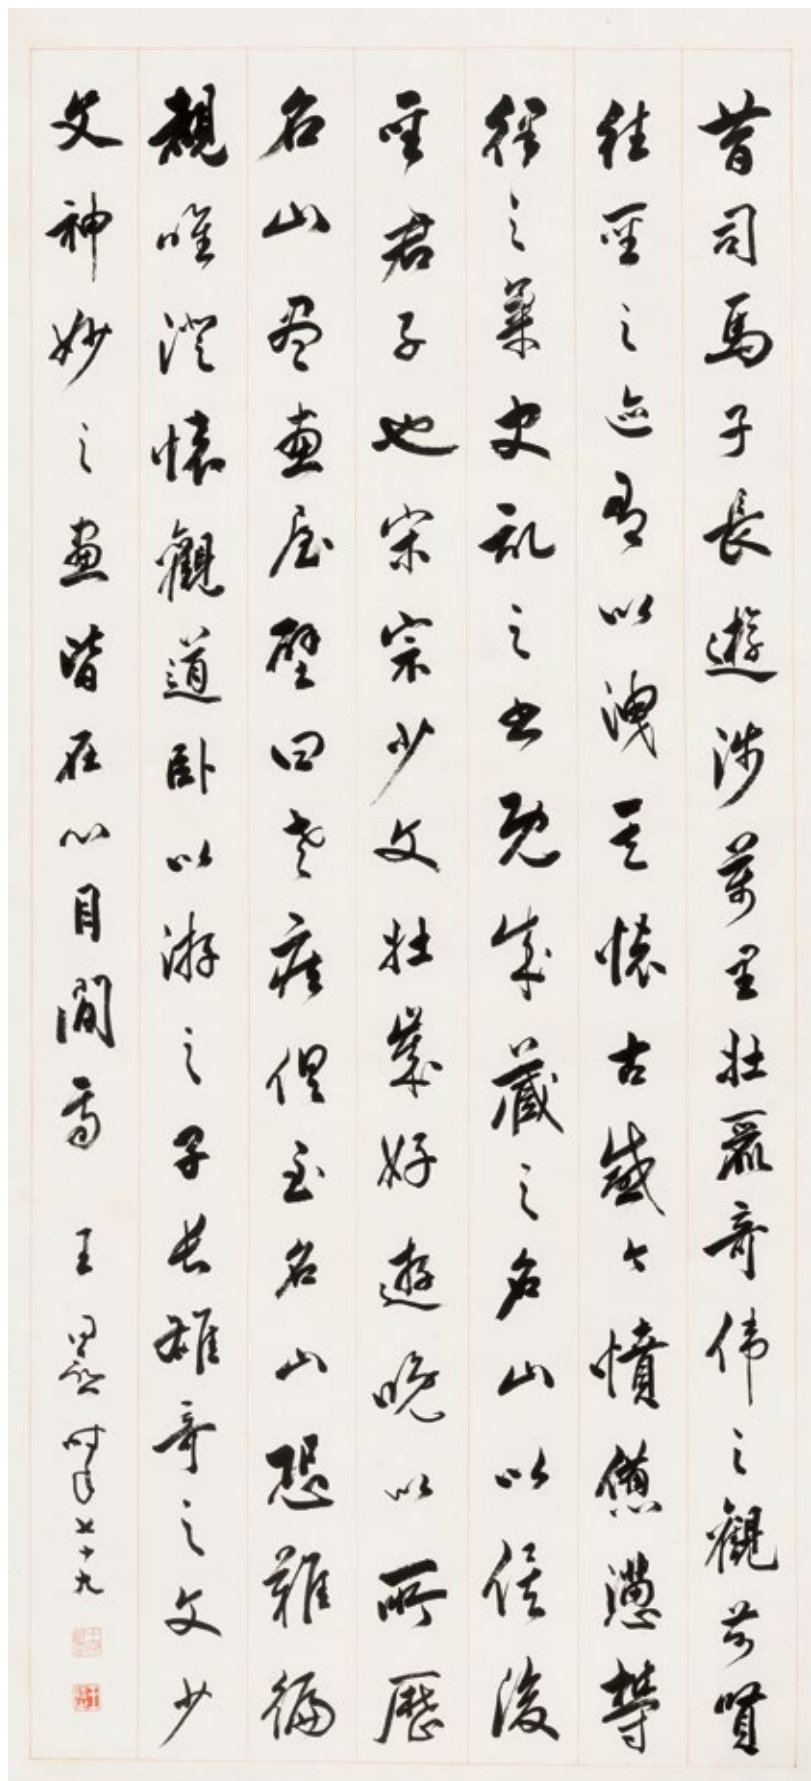 昔司馬子長遊涉萬里壯麗奇偉之觀前賢
往聖之迹有以洩其懷古感今憤懣
之史記之書既成藏之名山以俟後
聖君子也宋宗少文壯歲好遊晚以所歷
名山尽畫屋壁曰老疾俱至名山恐難徧
覩唯澄懷觀道臥以游之子長雄奇之文少
文神妙之畫皆在心目間焉 王時年七十九